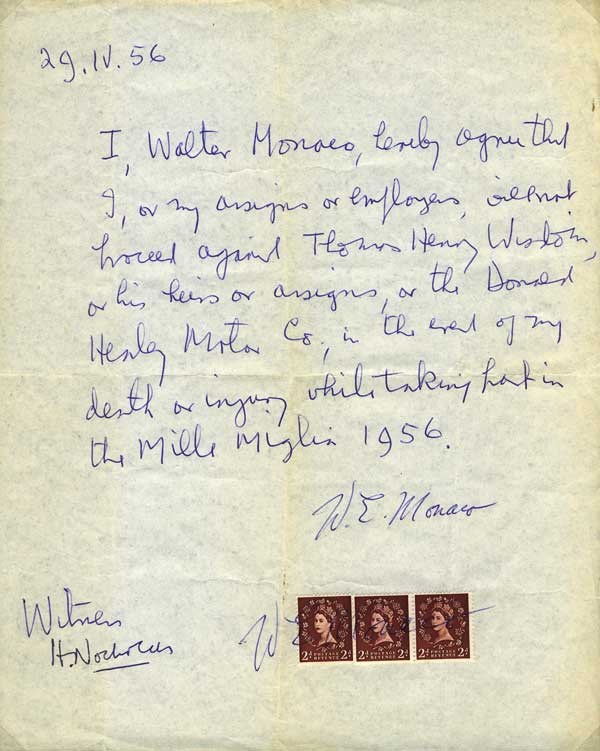 29.IV.56
I, Walter Monaco, hereby agree that
I, or my assigns or employers, will not
proceed against Thomas Henry Wisdom,
or his heirs or assigns, or the Donald
Healey Motor Co., in the event of my
death or injury while taking part in
the Mille Miglia 1956.
W. E. Monaco
Witness
H. Nocholds
W E
2d POSTAGE REVENUE 2d
2d POSTAGE REVENUE 2d
2d POSTAGE REVENUE 2d